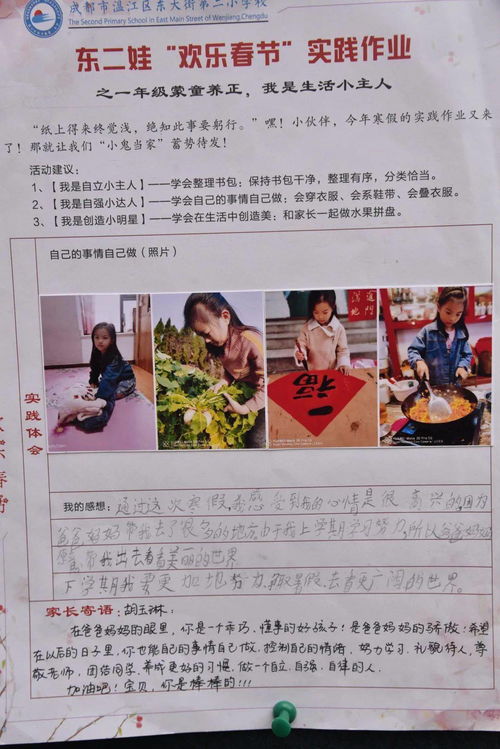 成都市温江区东大街第二小学校
The Second Primary School in East Main Street of Wenjiang,Chengdu
东二娃“欢乐春节”实践作业
之一年级蒙童养正，我是生活小主人
“纸上得来终觉浅，绝知此事要躬行。”嘿！小伙伴，今年寒假的实践作业又来
了！那就让我们“小鬼当家”蓄势待发！
活动建议：
1、【我是自立小主人】——学会整理书包；保持书包干净，整理有序，分类恰当。
2、【我是自强小达人】——学会自己的事情自己做；会穿衣服、会系鞋带、会叠衣服。
3、【我是创造小明星】——学会在生活中创造美；和家长一起做水果拼盘。
自己的事情自己做（照片）
福
实践体会
我的感想：通过这次寒假，我感受到我的心情是很高兴的因为
爸爸妈妈带我去了很多的地方，由于我上学期学习努力，所以爸爸妈妈
愿意带我出去看看美丽的世界
下学期我要更加地努力，暑假去看更广阔的世界。
家长寄语：胡玉琳：
在爸爸妈妈的眼里，你是一个乖巧、懂事的好孩子！是爸爸妈妈的骄傲；希望
在以后的日子里，你也能自己的事情自己做，控制自己的情绪，努力学习，礼貌待人，尊
敬老师，团结同学，养成更好的习惯，做一个自立、自强、自律的人。
加油吧！宝贝，你是棒棒的！！！